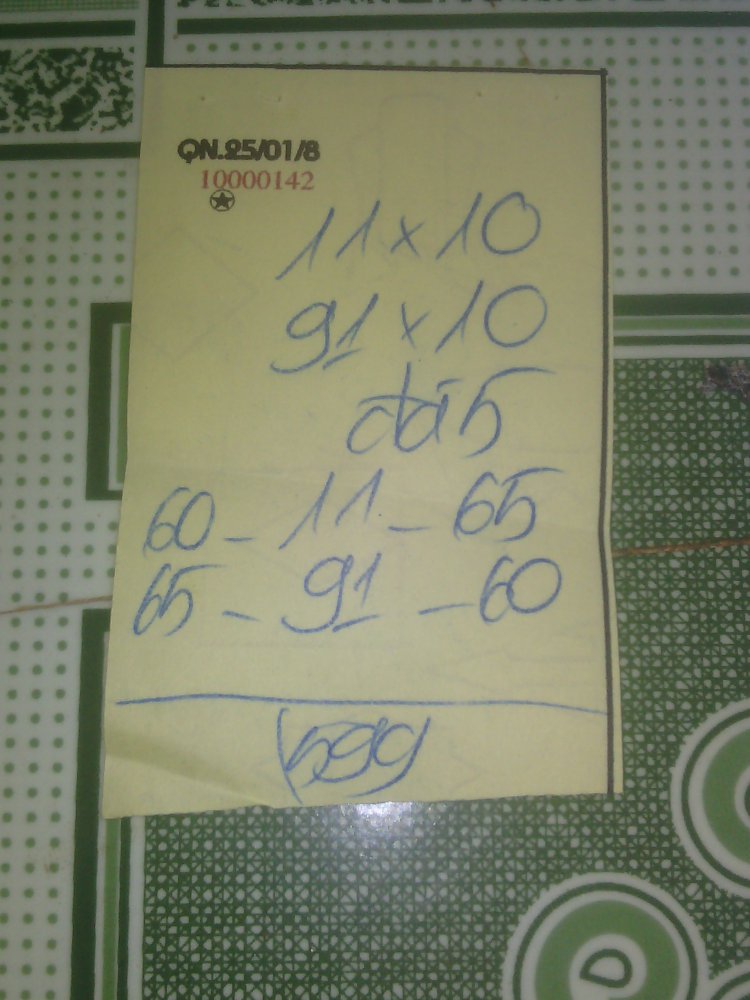 QN.25/01/8
10000142
11 x 10
91 x 10
đá 5
60 - 11 - 65
65 - 91 - 60
(599)